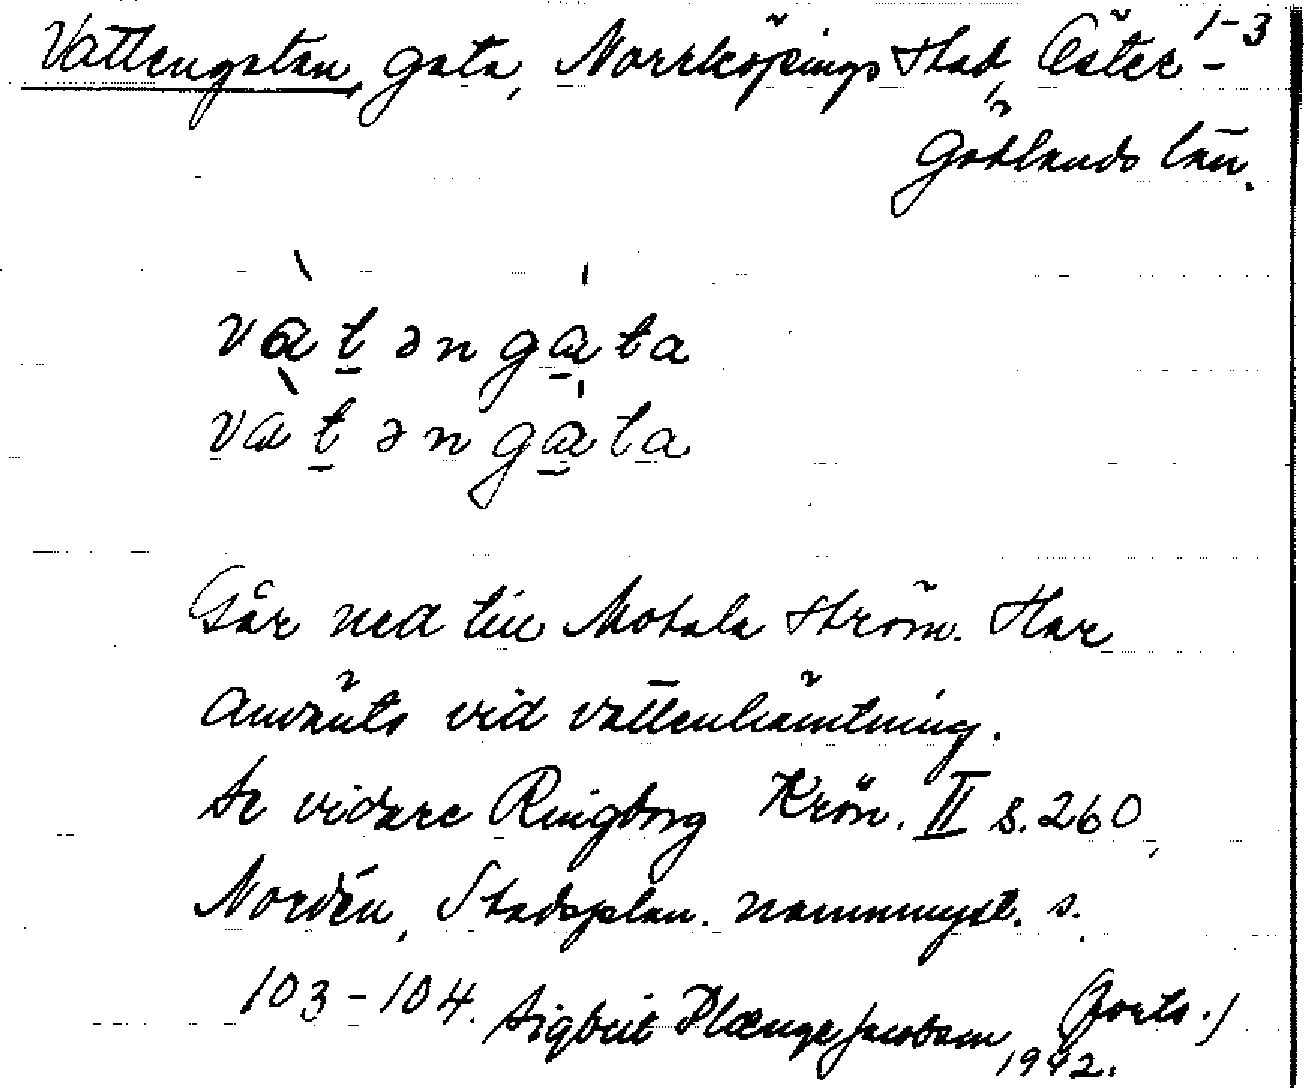 1-3
Vattengatan, gata, Norrköpings stad, Öster-
götlands län.
và t̠ ə n g á̠ t a
và t̠ ə n g á̠ t a
Går ned till Motala ström. Har
använts vid vattenhämtning.
Se vidare Ringborg Krön. II s. 260,
Nordén, Stadsplan. namnmyst. s.
103-104. Sigbrit Plænge Jacobson, 1942.
(forts.)